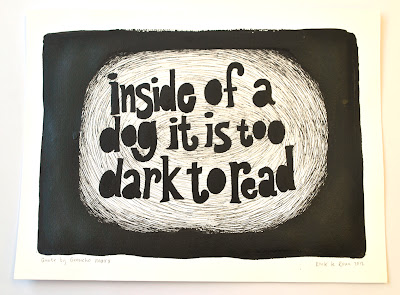 inside of a
dog it is too
dark to read
Quote by Groucho Marx